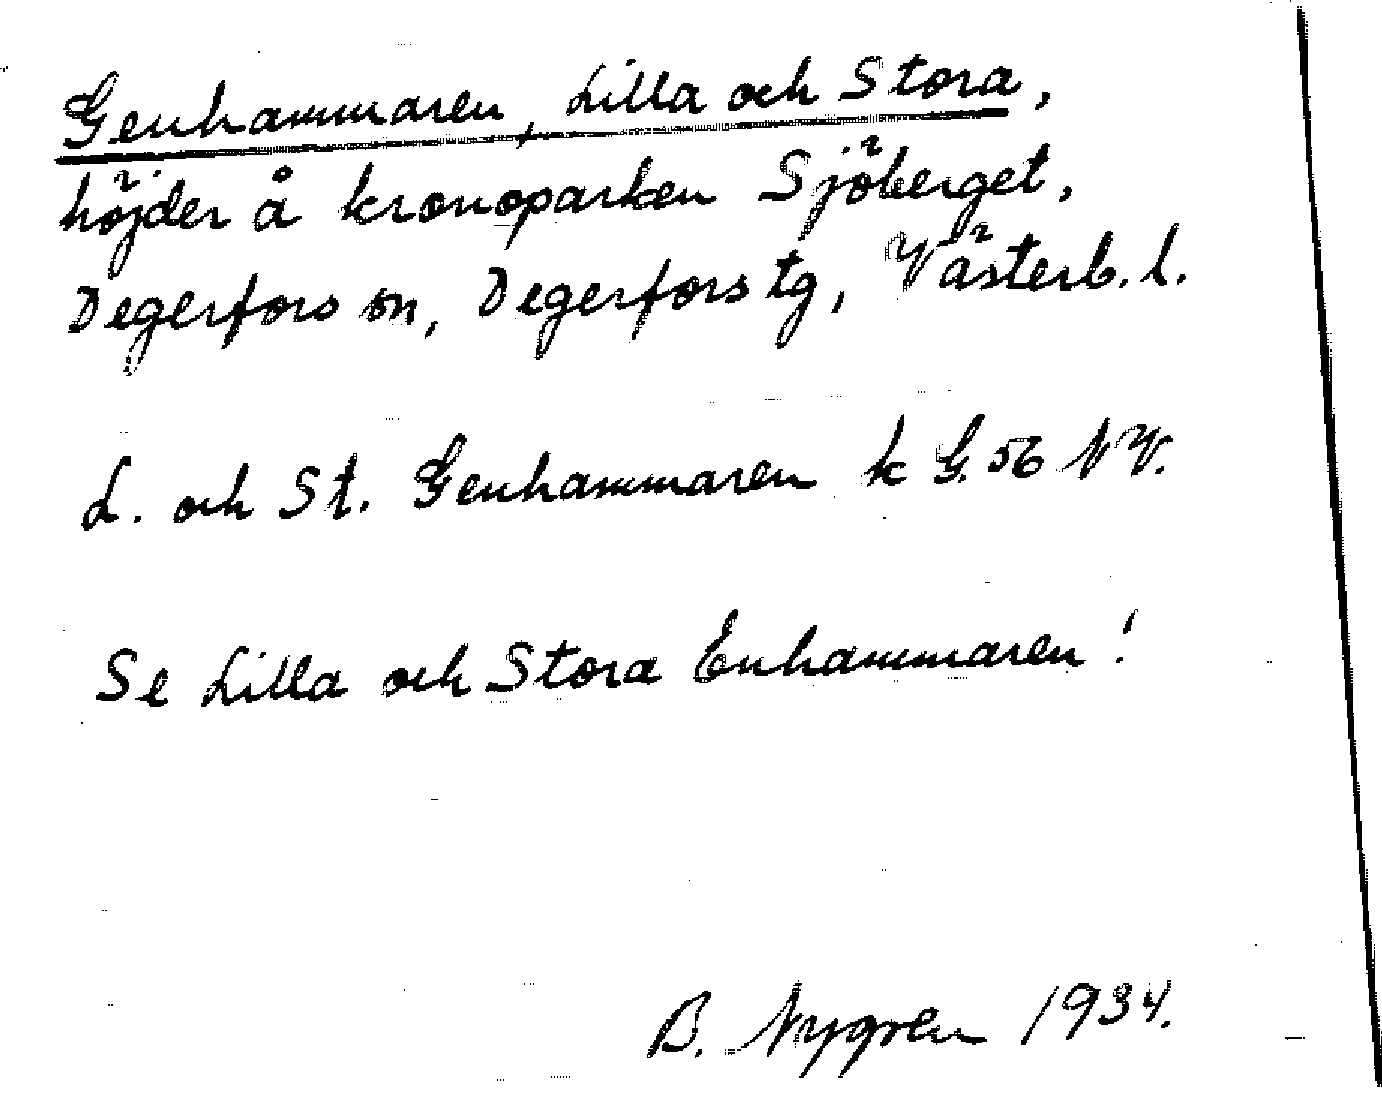 Genhammaren, Lilla och Stora,
höjder å kronoparken Sjöberget,
Degerfors sn, Degerfors tg, Västerb. l.
L. och St. Genhammaren k G. 56 NV.
Se Lilla och Stora Enhammaren!
B. Nygren 1934.